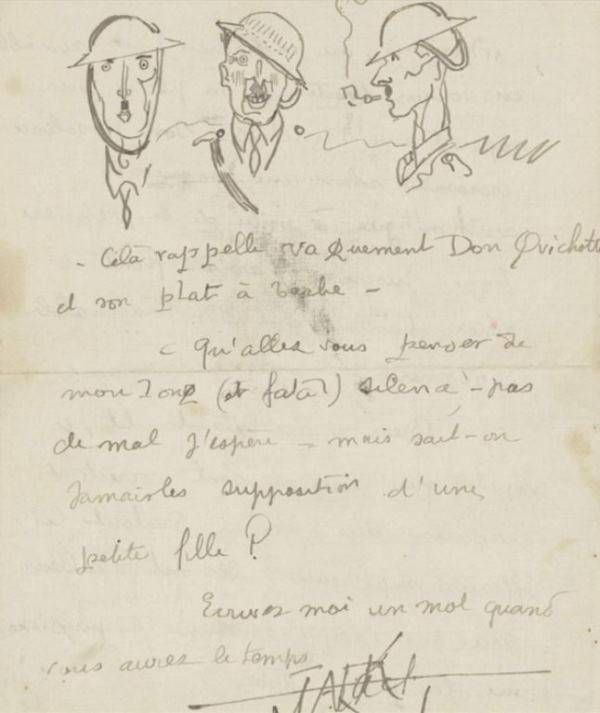 - Celà rappelle vaguement Don Quichotte
et son plat à barbe -
- Qu'allez vous penser de
mon long (et fatal) silence - pas
de mal j'espère - mais sait-on
jamais les supposition d'une
petite fille ?
Ecrivez moi un mot quand
vous aurez le temps